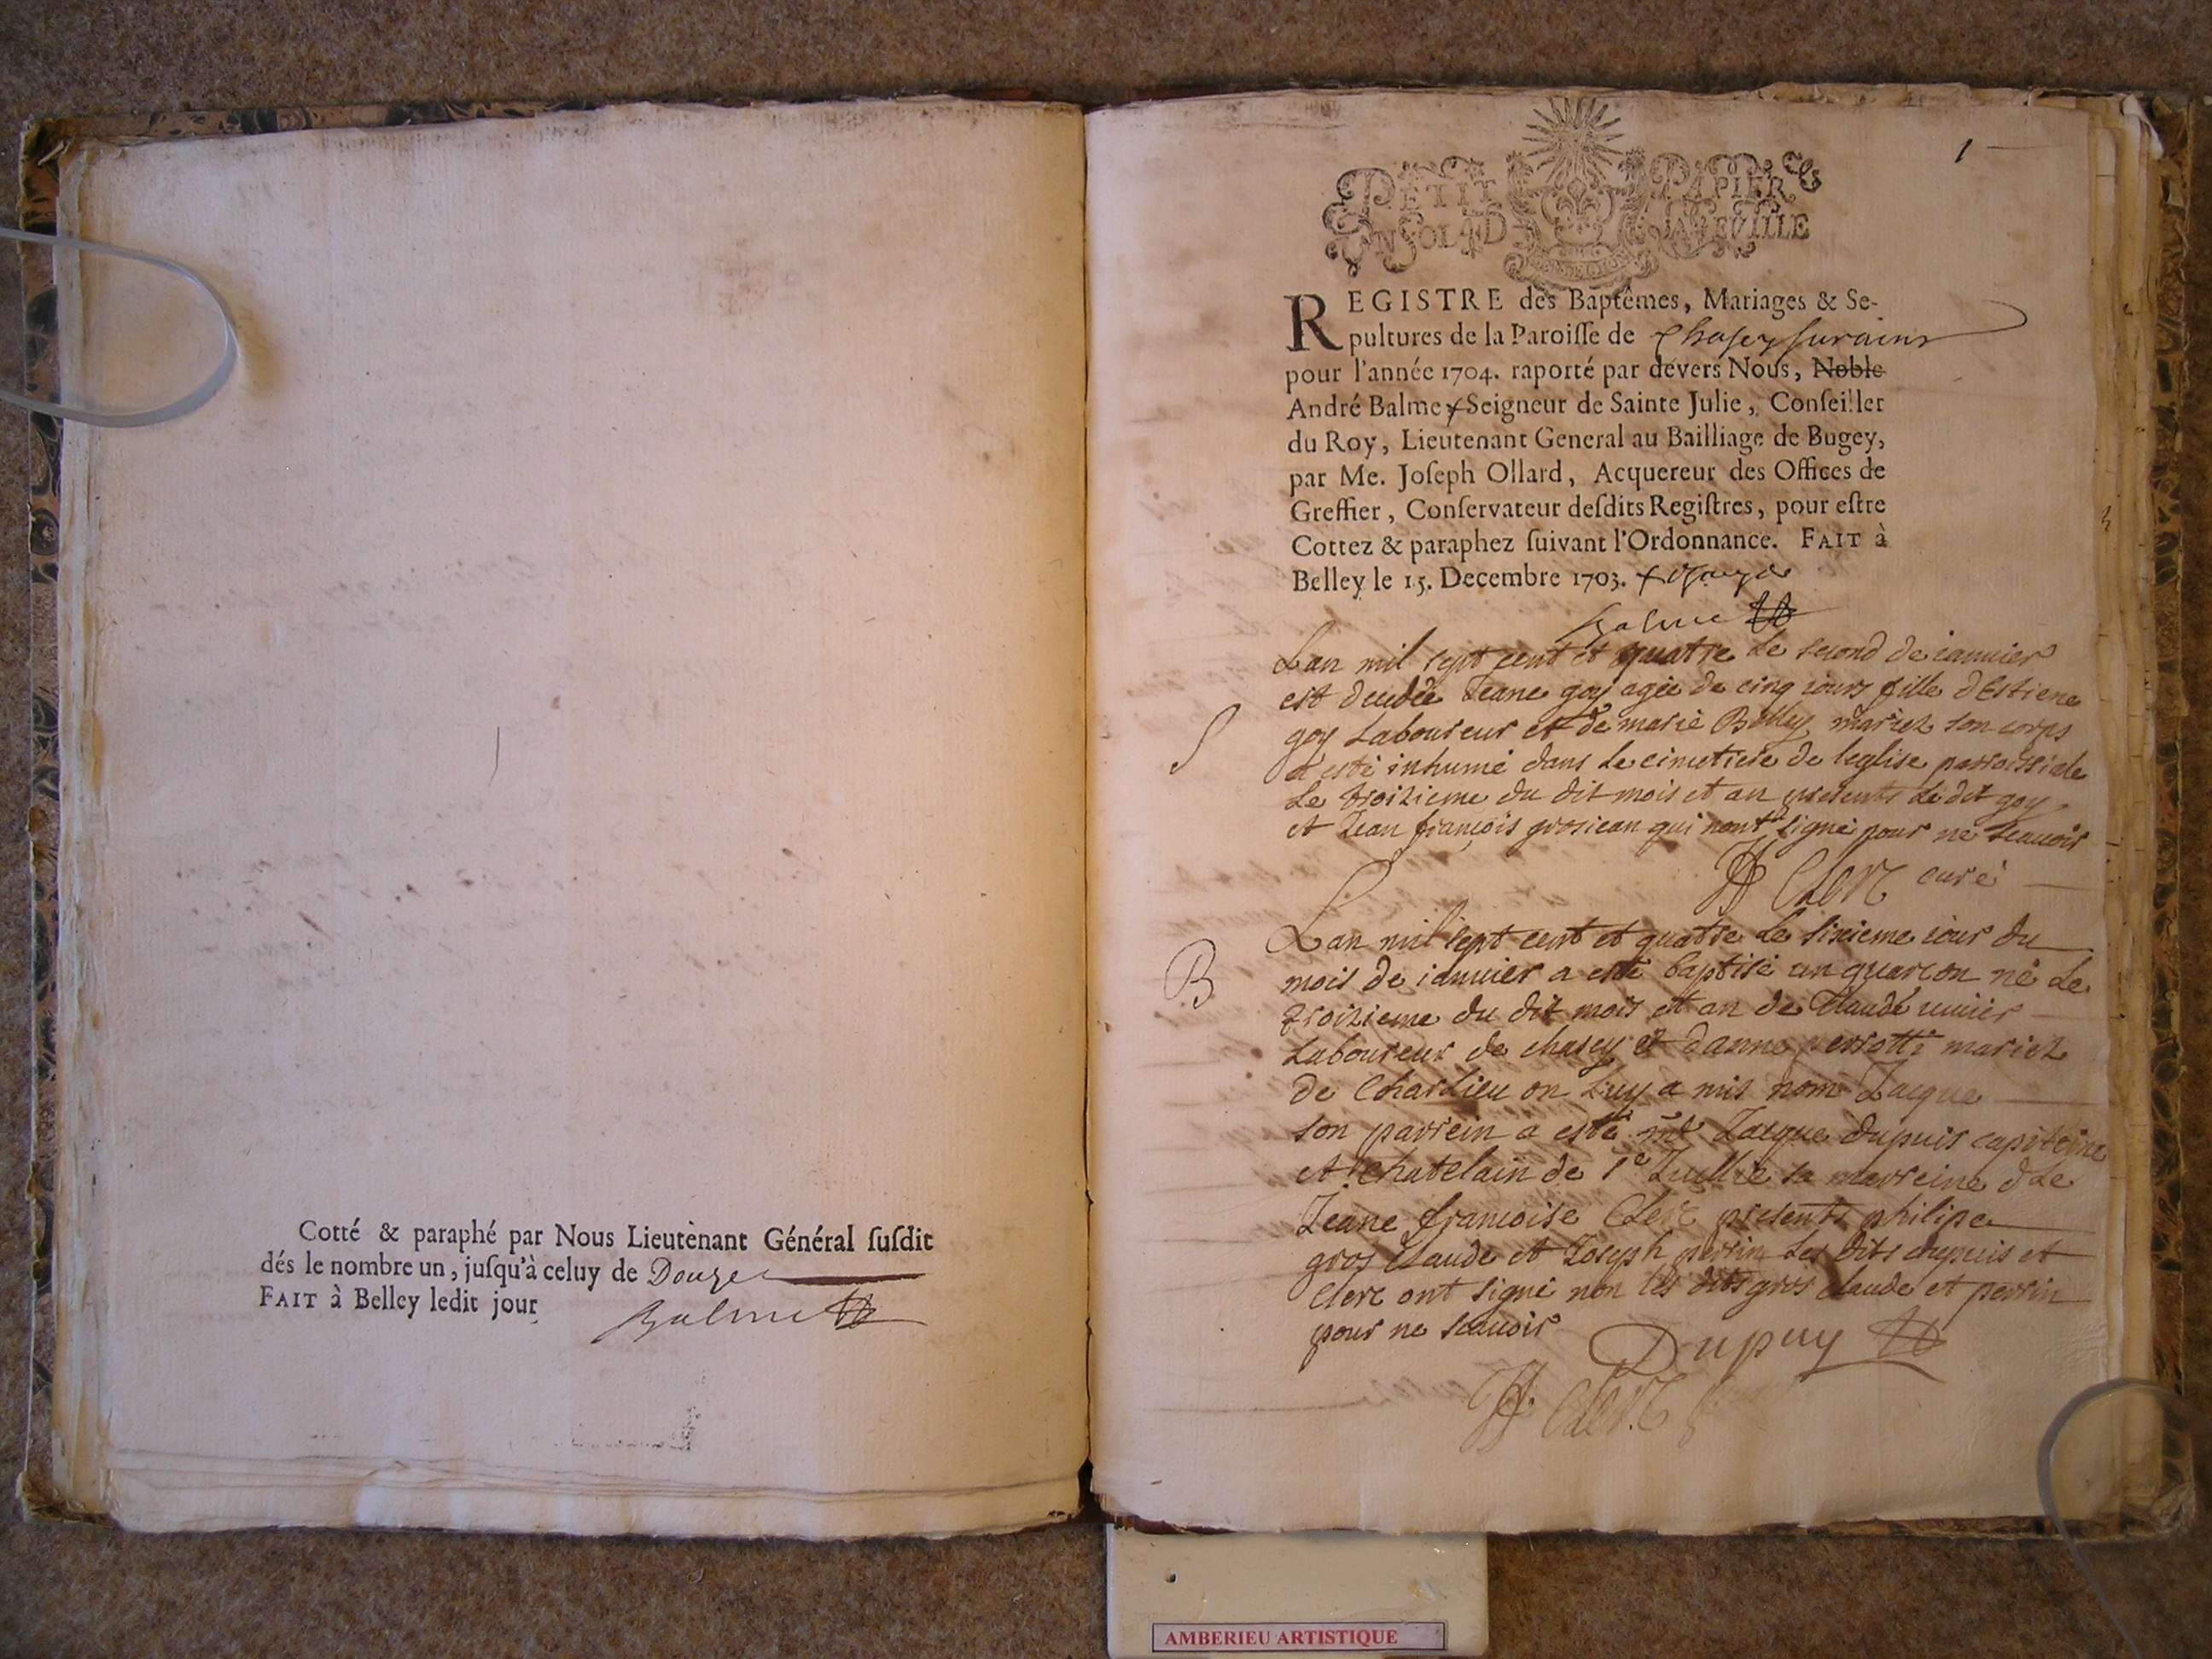 Cotté & paraphé par Nous Lieutenant Général ſuſdit
dés le nombre un, juſqu'à celuy de Douze
FAIT à Belley ledit jour
Balme
1
PETIT PAPIER
UN SOL LA FEUILLE
REGISTRE des Baptêmes, Mariages & Se-
pultures de la Paroiſſe de Chasey sur ains
pour l'année 1704. raporté par devers Nous, Noble
André Balme Seigneur de Sainte Julie, Conſeiller
du Roy, Lieutenant General au Bailliage de Bugey,
par Me. Joſeph Ollard, Acquereur des Offices de
Greffier, Conſervateur deſdits Regiſtres, pour eſtre
Cottez & paraphez ſuivant l'Ordonnance. FAIT à
Belley le 15. Decembre 1703.
Balme
Lan mil sept cent et quatre le second de ianuier
est decedée Jeane goy agée de cinq iours fille dEstiene
goy Laboureur et de marie Bolley mariez son corps
S
a esté inhumé dans le cimetiere de leglise parroissiale
Le troizieme du dit mois et an presents le dit goy
et Jean françois grosiean qui nont signé pour ne scauoir
Clerc curé
Lan mil sept cent et quatre le sixieme iour du
B
mois de ianuier a esté baptisé un guarcon né le
troizieme du dit mois et an de Claude
Laboureur de chasey et danne perrotte mariez
de Charlieu on luy a mis nom Jacque
son parrein a esté mr Jacque dupuis capiteine
et chatelain de Ste Jullie sa marreine dlle
Jeane francoise Clerc presents philipe
gros claude et Joseph perrin les dits dupuis et
Clerc ont signé non les dits gros claude et perrin
pour ne scauoir
Dupuy
Clerc
AMBERIEU ARTISTIQUE